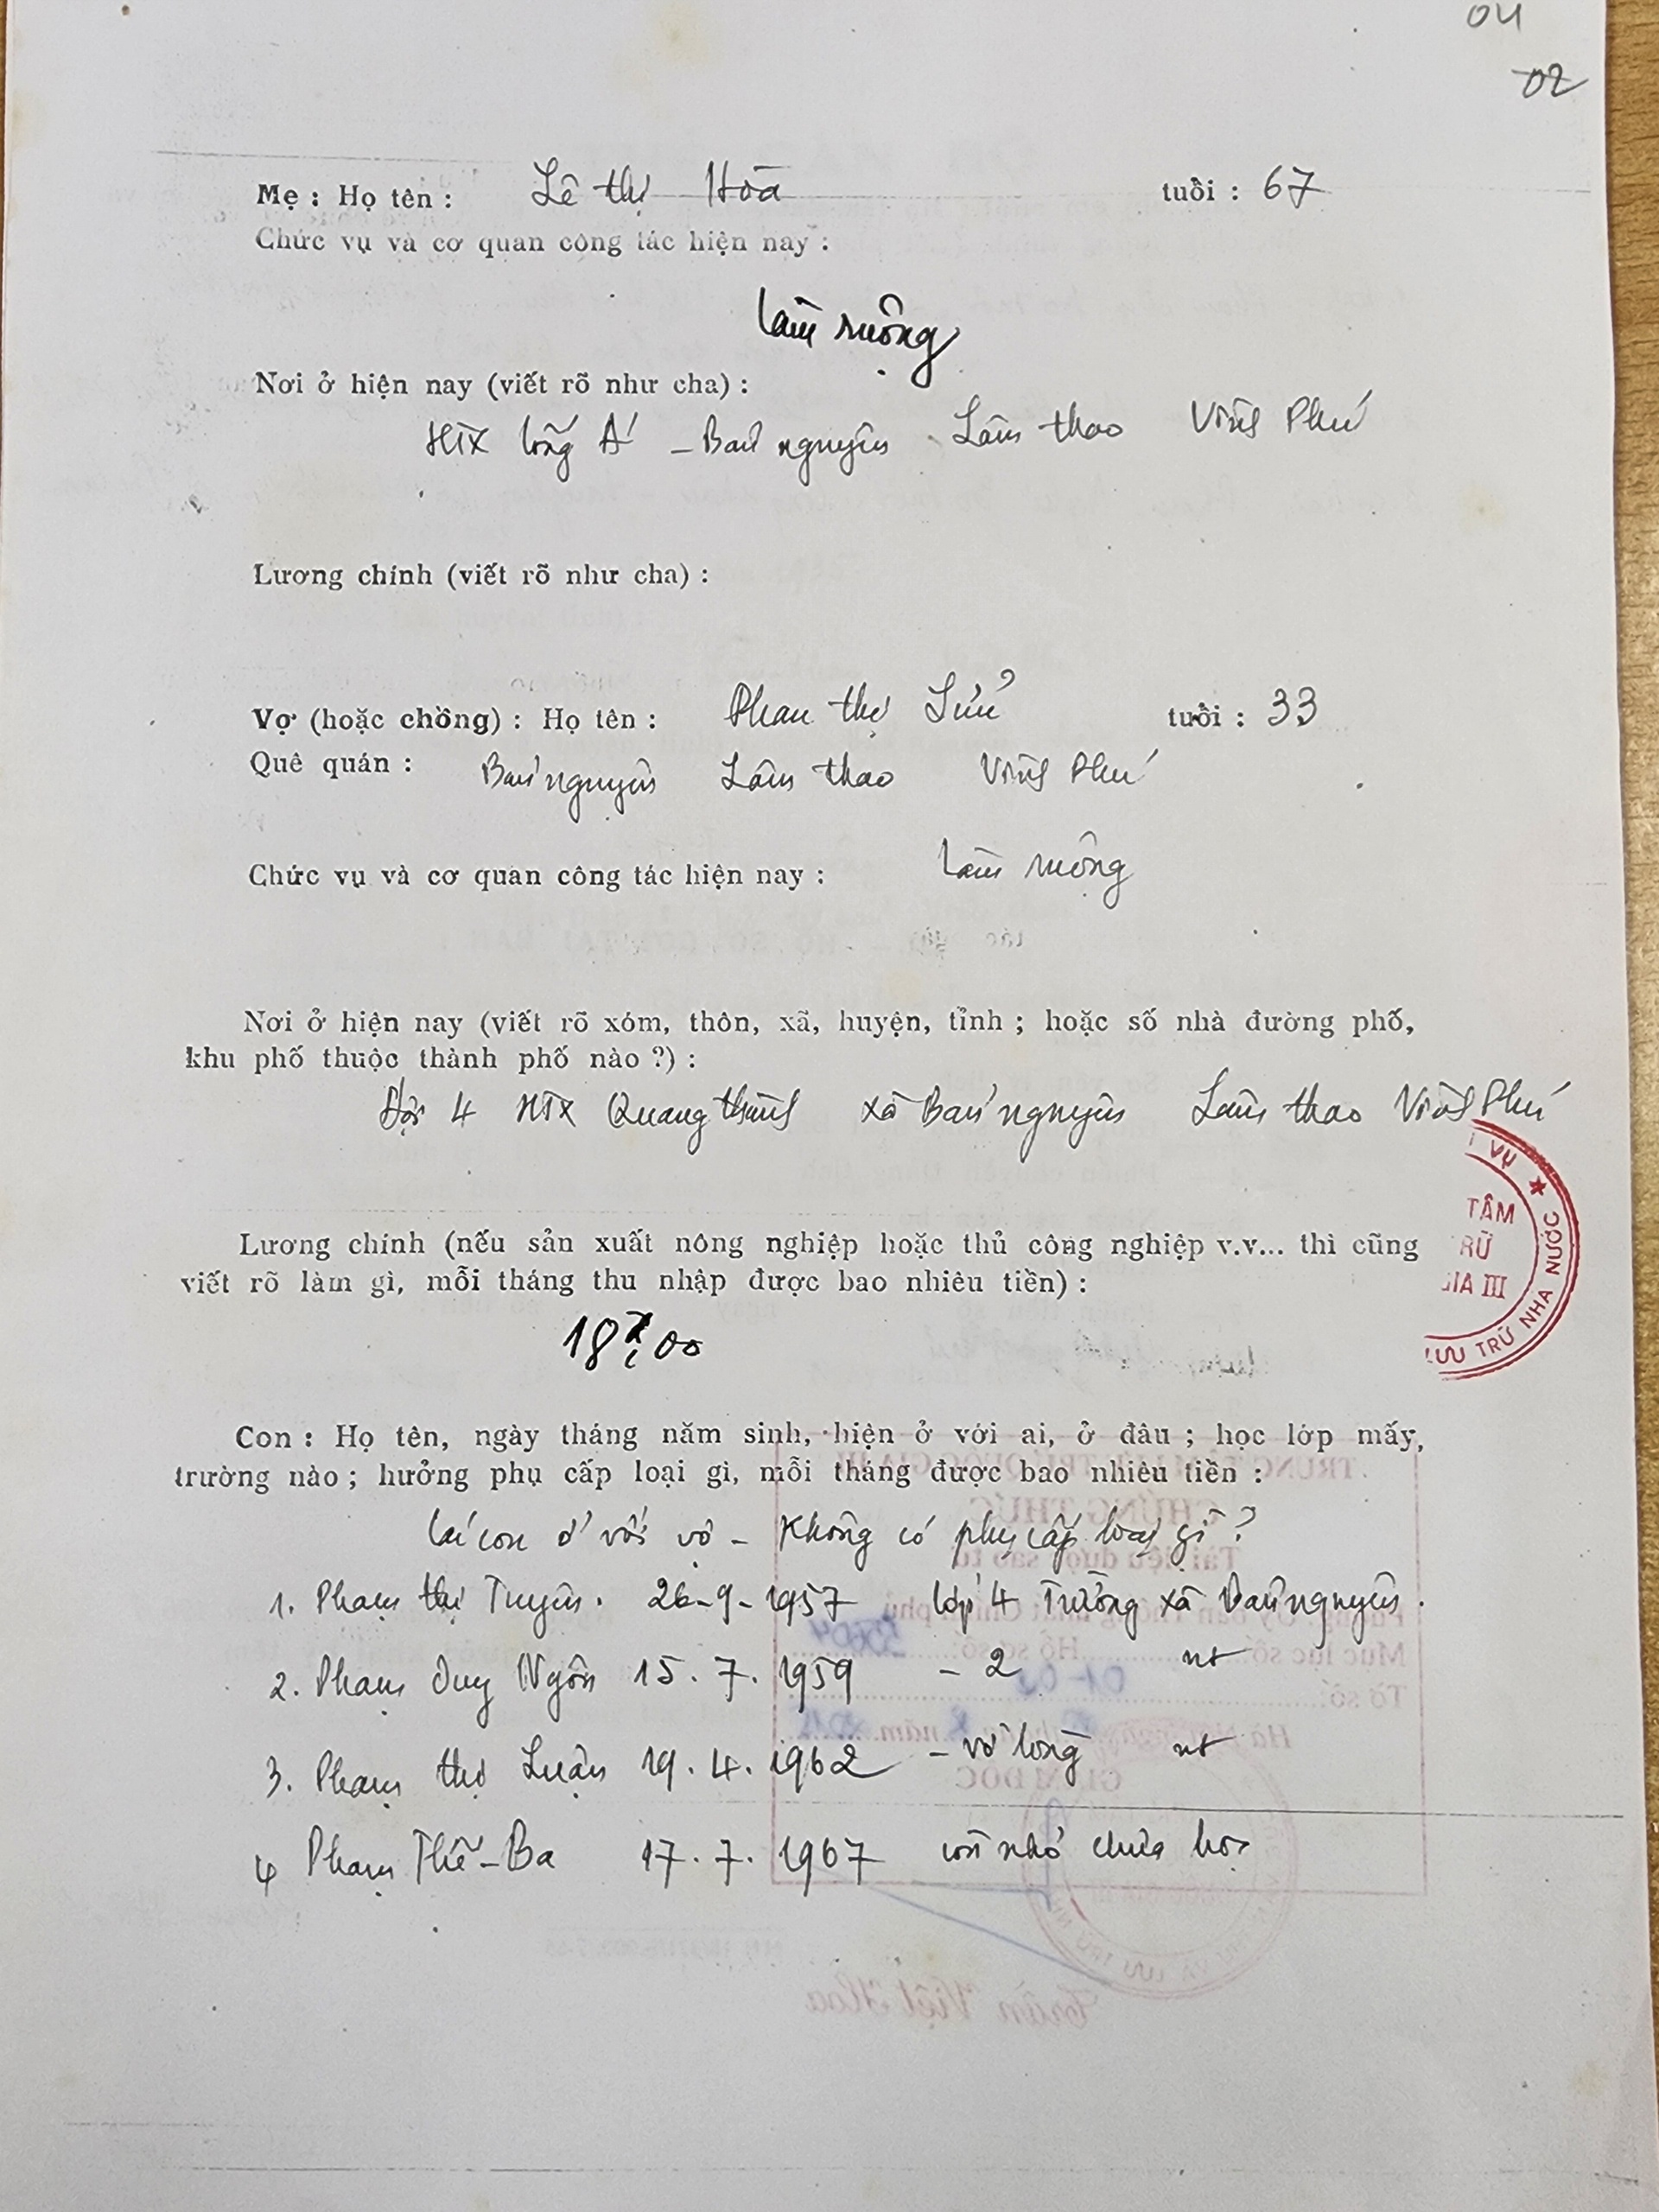 04
02
Mẹ : Họ tên : Lê thị Hòa tuổi : 67
Chức vụ và cơ quan công tác hiện nay :
làm ruộng
Nơi ở hiện nay (viết rõ như cha) :
HTX A – Bản nguyên Lâm thao Vĩnh Phú
Lương chính (viết rõ như cha) :
Vợ (hoặc chồng) : Họ tên : Phan thị Sửu tuổi : 33
Quê quán : Bản nguyên Lâm thao Vĩnh Phú
Chức vụ và cơ quan công tác hiện nay : làm ruộng
Nơi ở hiện nay (viết rõ xóm, thôn, xã, huyện, tỉnh ; hoặc số nhà đường phố,
khu phố thuộc thành phố nào ?) :
Đội 4 HTX Quang thành xã Bản nguyên Lâm thao Vĩnh Phú
I VỤ ★
TÂM
RỮ
GIA III
LƯU TRỮ NHÀ NƯỚC
Lương chính (nếu sản xuất nông nghiệp hoặc thủ công nghiệp v.v... thì cũng
viết rõ làm gì, mỗi tháng thu nhập được bao nhiêu tiền) :
18đ,00
Con : Họ tên, ngày tháng năm sinh, hiện ở với ai, ở đâu ; học lớp mấy,
trường nào ; hưởng phụ cấp loại gì, mỗi tháng được bao nhiêu tiền :
các con ở với vợ – Không có phụ cấp loại gì ?
1. Phạm thị Tuyên. 26-9-1957 lớp 4 Trường xã Bản nguyên.
2. Phạm Duy Ngôn 15.7.1959 – 2 nt
3. Phạm thị Luận 19.4.1962 – vỡ lòng nt
4 Phạm Thế-Ba 17.7.1967 còn nhỏ chưa học